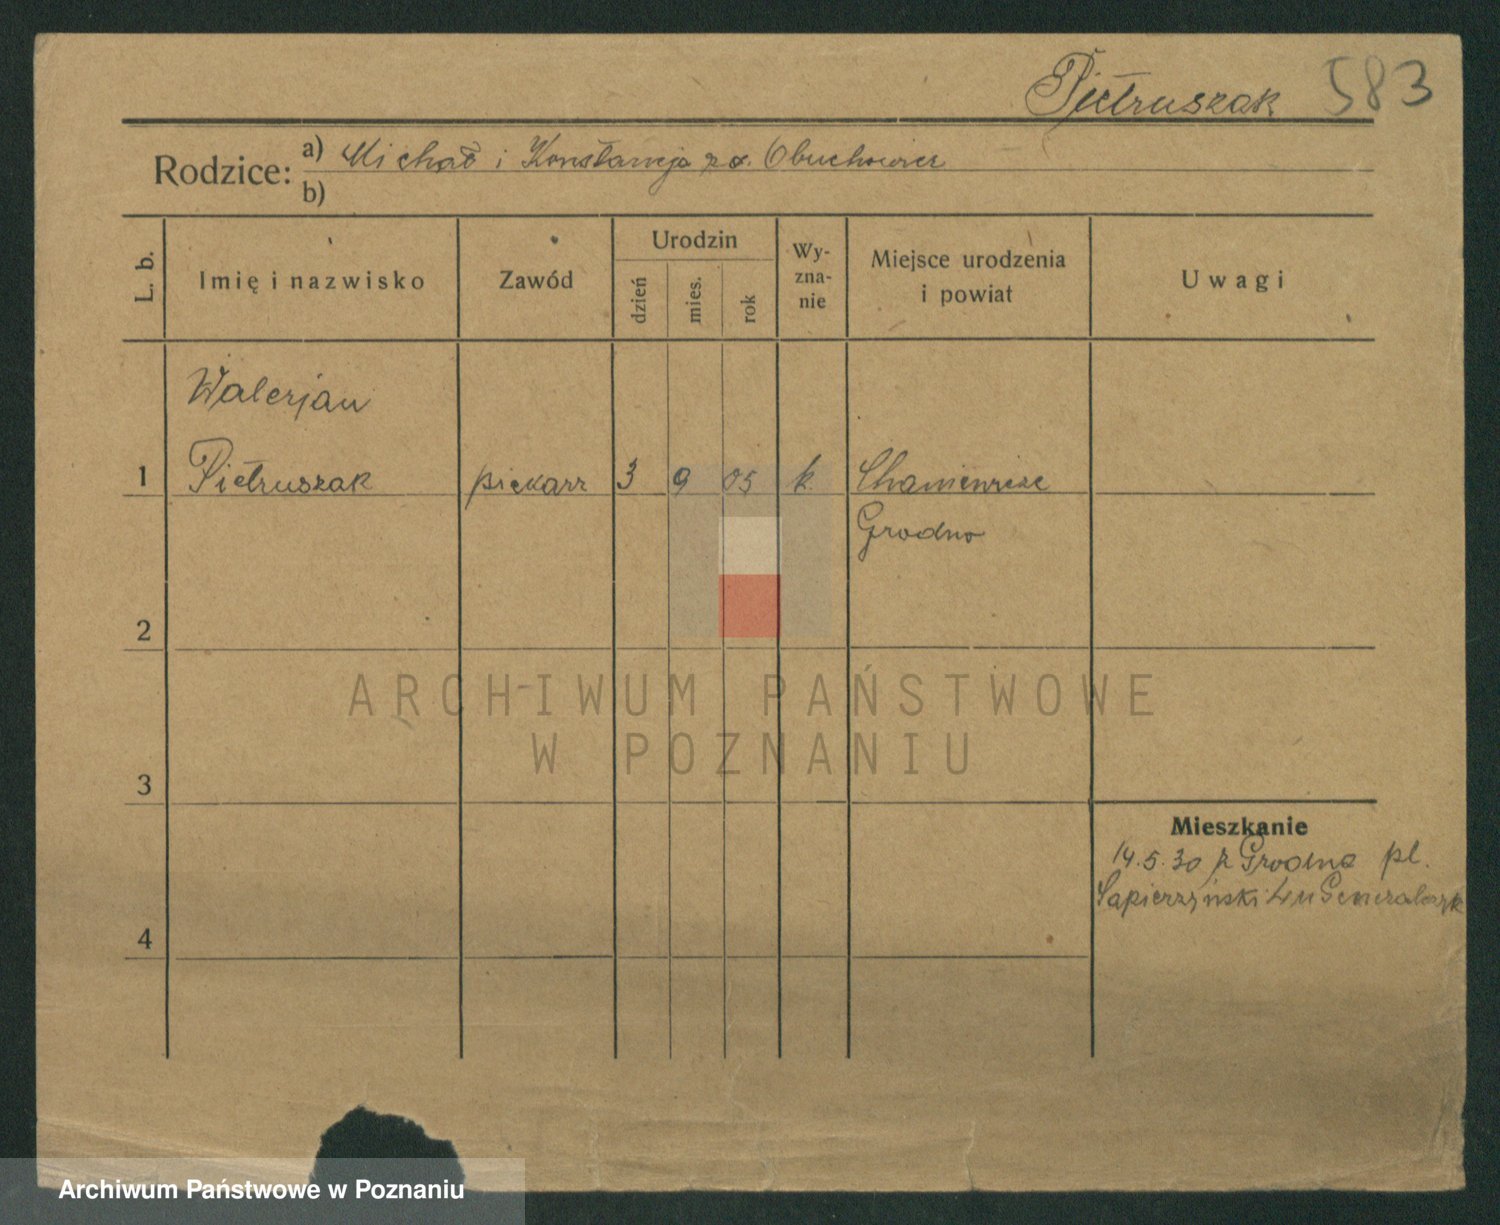 Pietruszak 583
Rodzice: a) Michał i Konstancja zd. Obuchowicz
b)
L. b.
Imię i nazwisko
Zawód
Urodzin
dzień
mies.
rok
Wy-
zna-
nie
Miejsce urodzenia
i powiat
Uwagi
Walerjan
1 Pietruszak piekarz 3 9 05 k.
Grodno
2
3
4
Mieszkanie
14.5.30 z Grodna pl.
Sapierzyński 4 u
ARCHIWUM PAŃSTWOWE
W POZNANIU
Archiwum Państwowe w Poznaniu